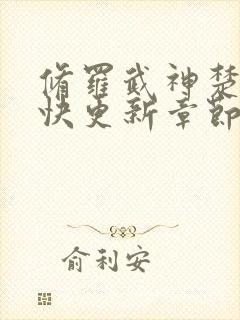 脩羅武神楚
快更新章節
俞利安